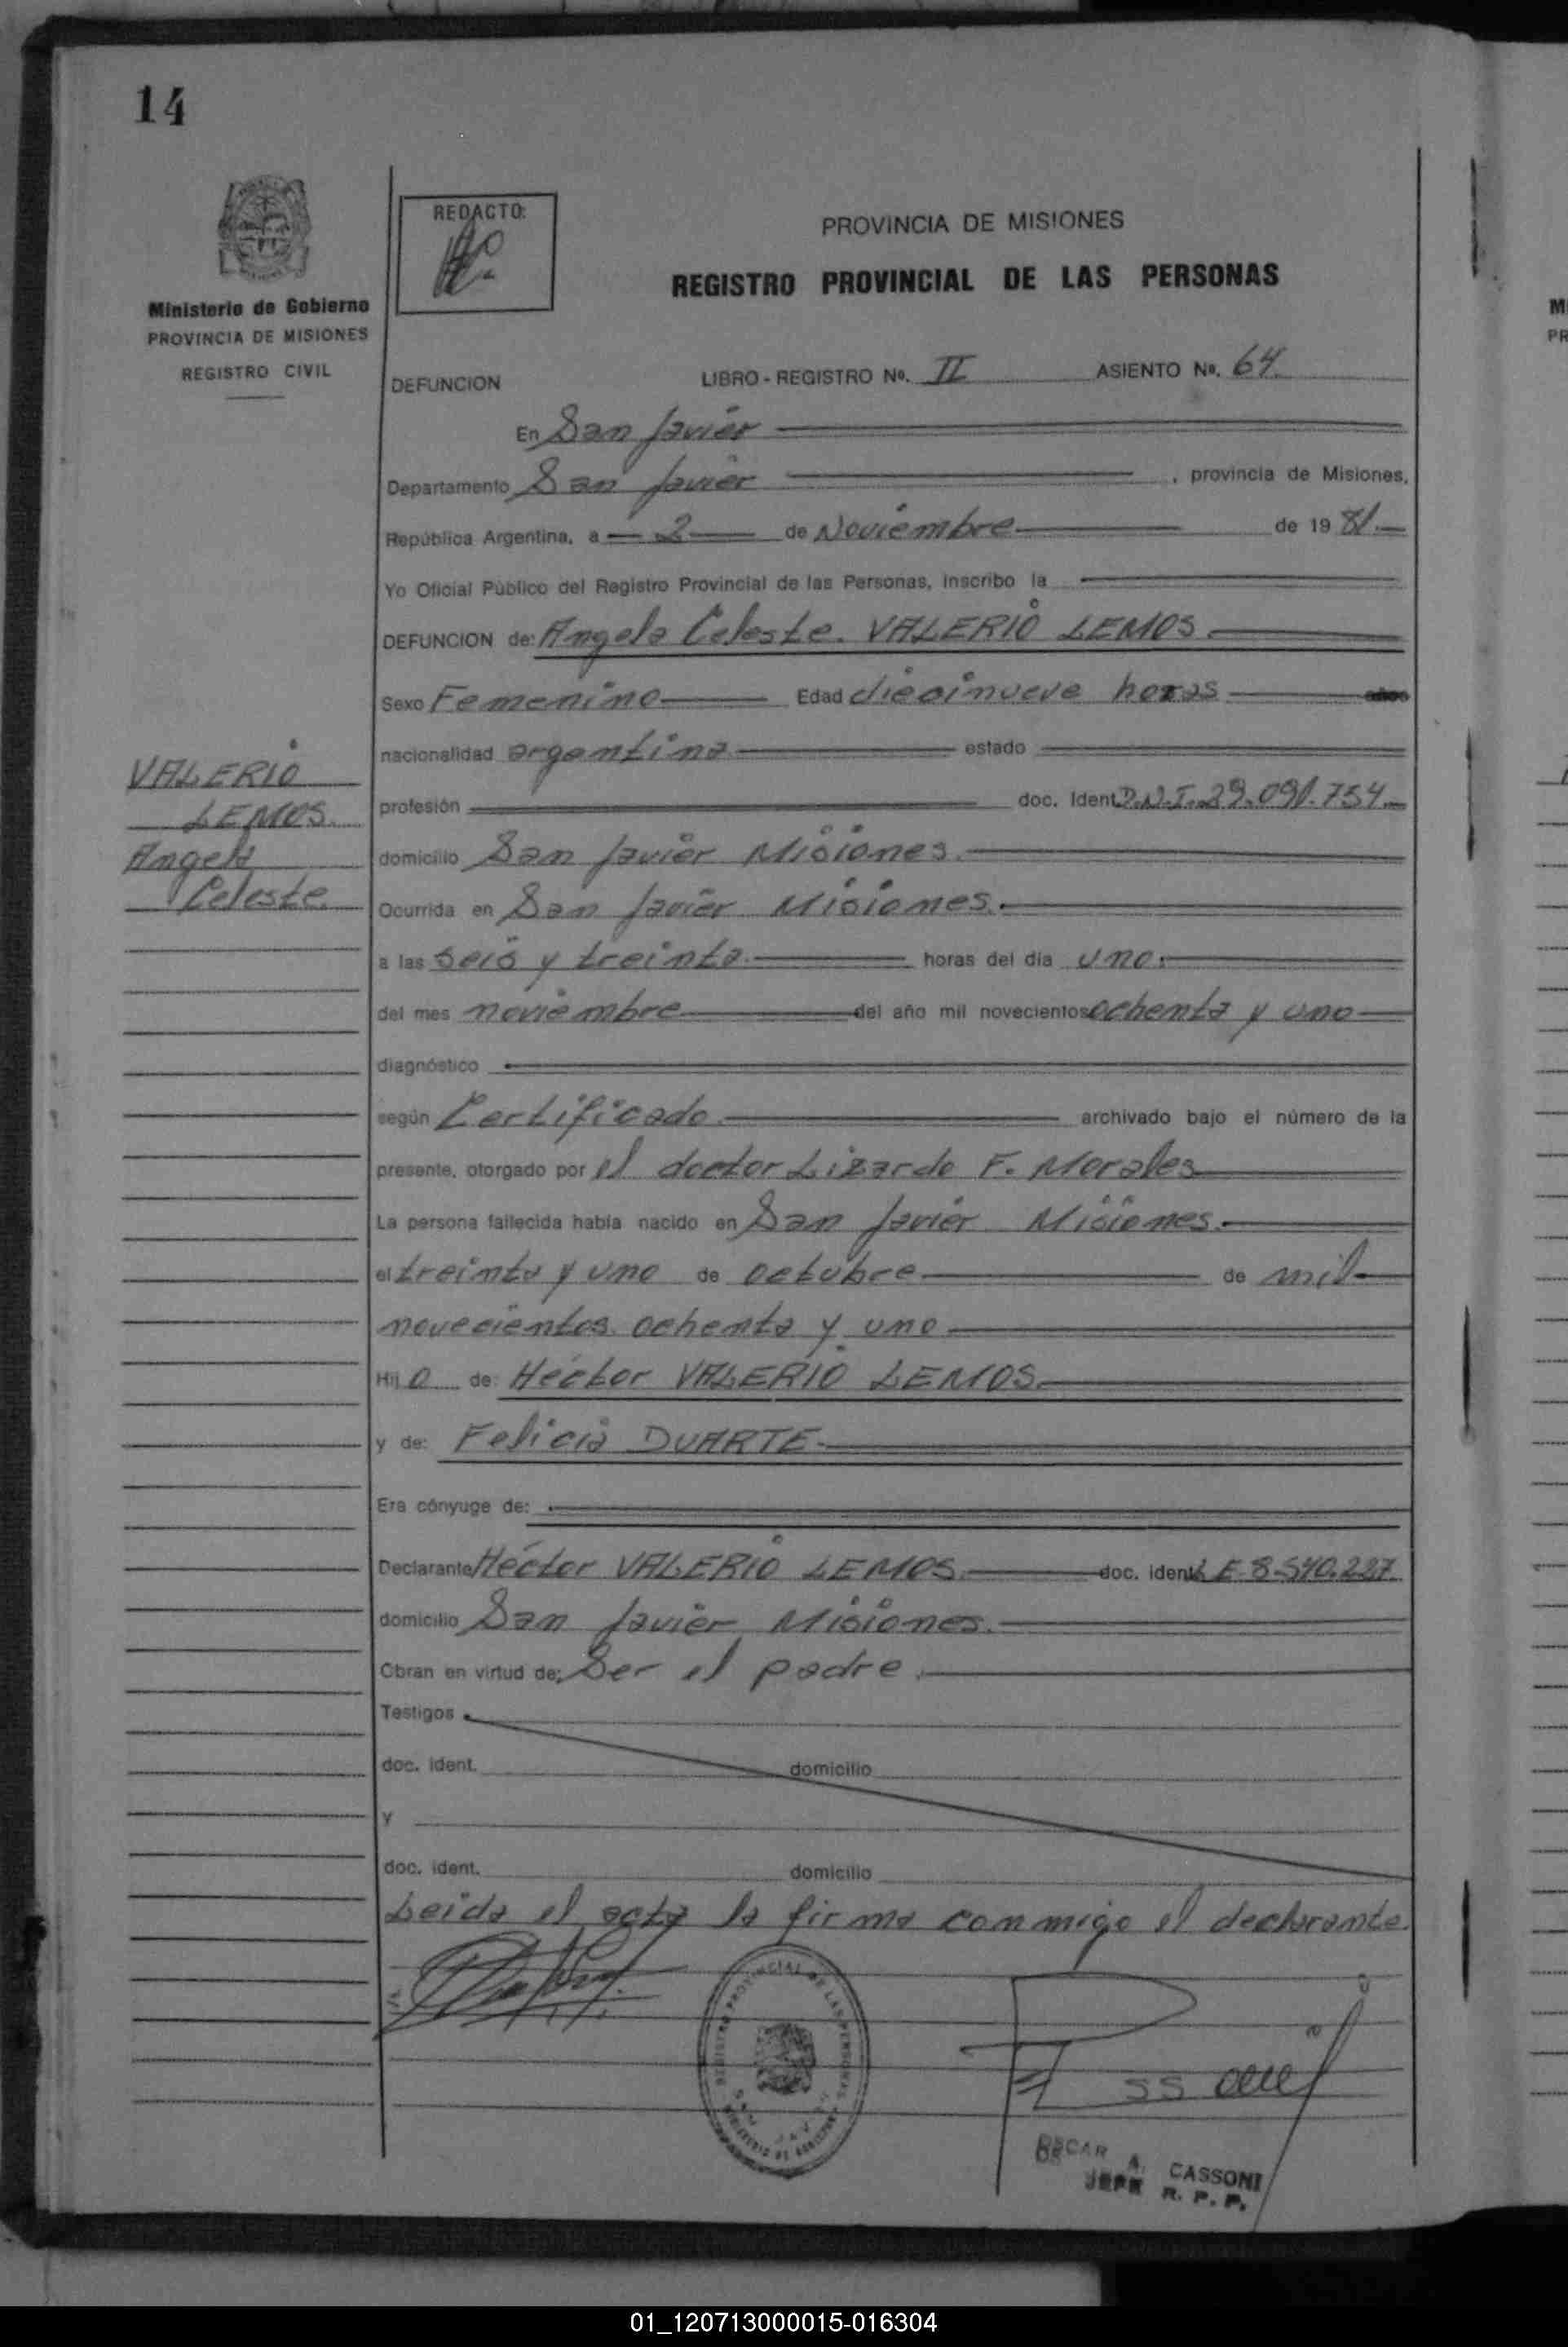 14
REDACTO:
PROVINCIA DE MISIONES
REGISTRO PROVINCIAL DE LAS PERSONAS
Ministerio de Gobierno
PROVINCIA DE MISIONES
REGISTRO CIVIL
DEFUNCION LIBRO - REGISTRO Nº. II ASIENTO Nº. 64.
En San Javier
Departamento San Javier , provincia de Misiones,
República Argentina, a 2 de Noviembre de 19 81.
Yo Oficial Público del Registro Provincial de las Personas, inscribo la
DEFUNCION de: Angela Celeste. VALERIO LEMOS
Sexo Femenino Edad diecinueve horas años
nacionalidad argentina estado
VALERIO
LEMOS.
Angela
Celeste.
profesión doc. Ident. D.N.I. 29.091.754
domicilio San Javier Misiones.
Ocurrida en San Javier Misiones.
a las seis y treinta. horas del día uno.
del mes noviembre del año mil novecientos ochenta y uno
diagnóstico
según Certificado. archivado bajo el número de la
presente, otorgado por el doctor Lizardo F. Morales
La persona fallecida había nacido en San Javier Misiones.
el treinta y uno de octubre de mil
novecientos ochenta y uno
Hij o de: Héctor VALERIO LEMOS.
y de: Felicia DUARTE.
Era cónyuge de:
Declarante Héctor VALERIO LEMOS. doc. ident. L E 8.540.227
domicilio San Javier Misiones.
Obran en virtud de: Ser el padre.
Testigos
doc. ident. domicilio
y
doc. ident. domicilio
Leida el acta la firma conmigo el declarante.
REGISTRO PROVINCIAL DE LAS PERSONAS
OSCAR A. CASSONI
JEFE R. P. P.
01_120713000015-016304